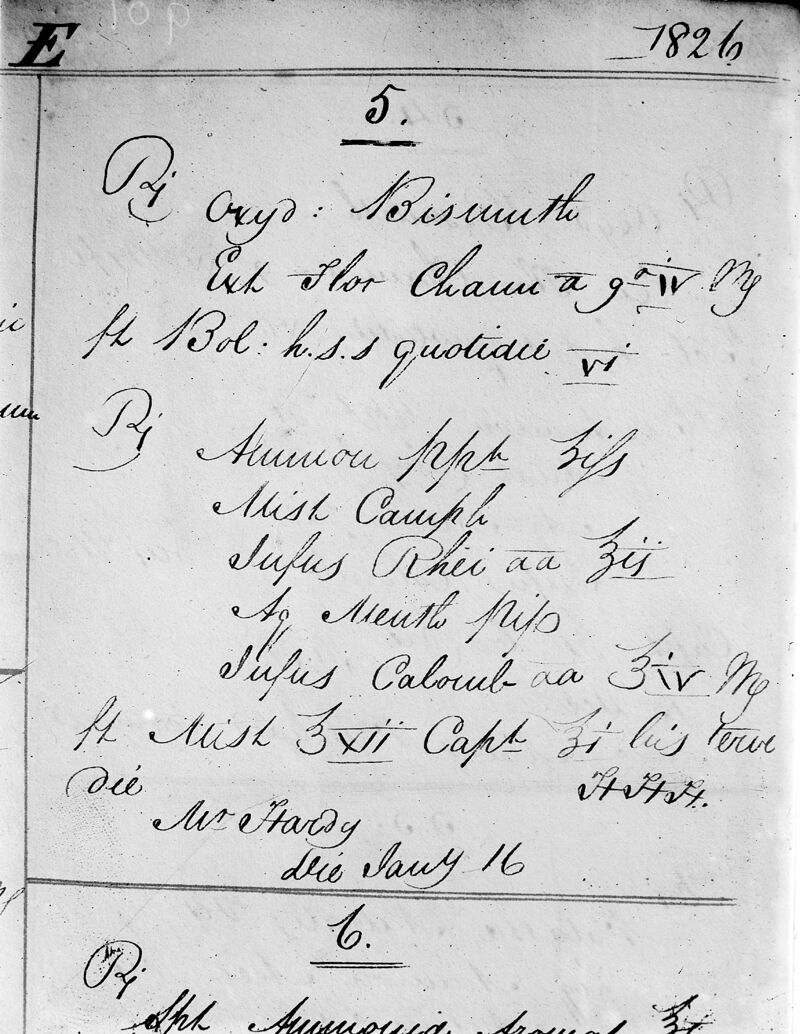 E 1826
5.
Rj Oxyd: Bismuth
Ext Flor Cham a gr iv M
ft Bol: h.s.s quotidie vi
Rj
Ammon ppt ʒifs
Mist Camph
Infus Rhei aa ℥ii
Aq Menth Pip
Infus Calomb aa ℥iv M
ft Mist ℥xii Capt ℥i bis terve
die H.H.H.
Mr Hardy
die Jany 16
6.
Rj
Spt Ammonia Aromat ℥i